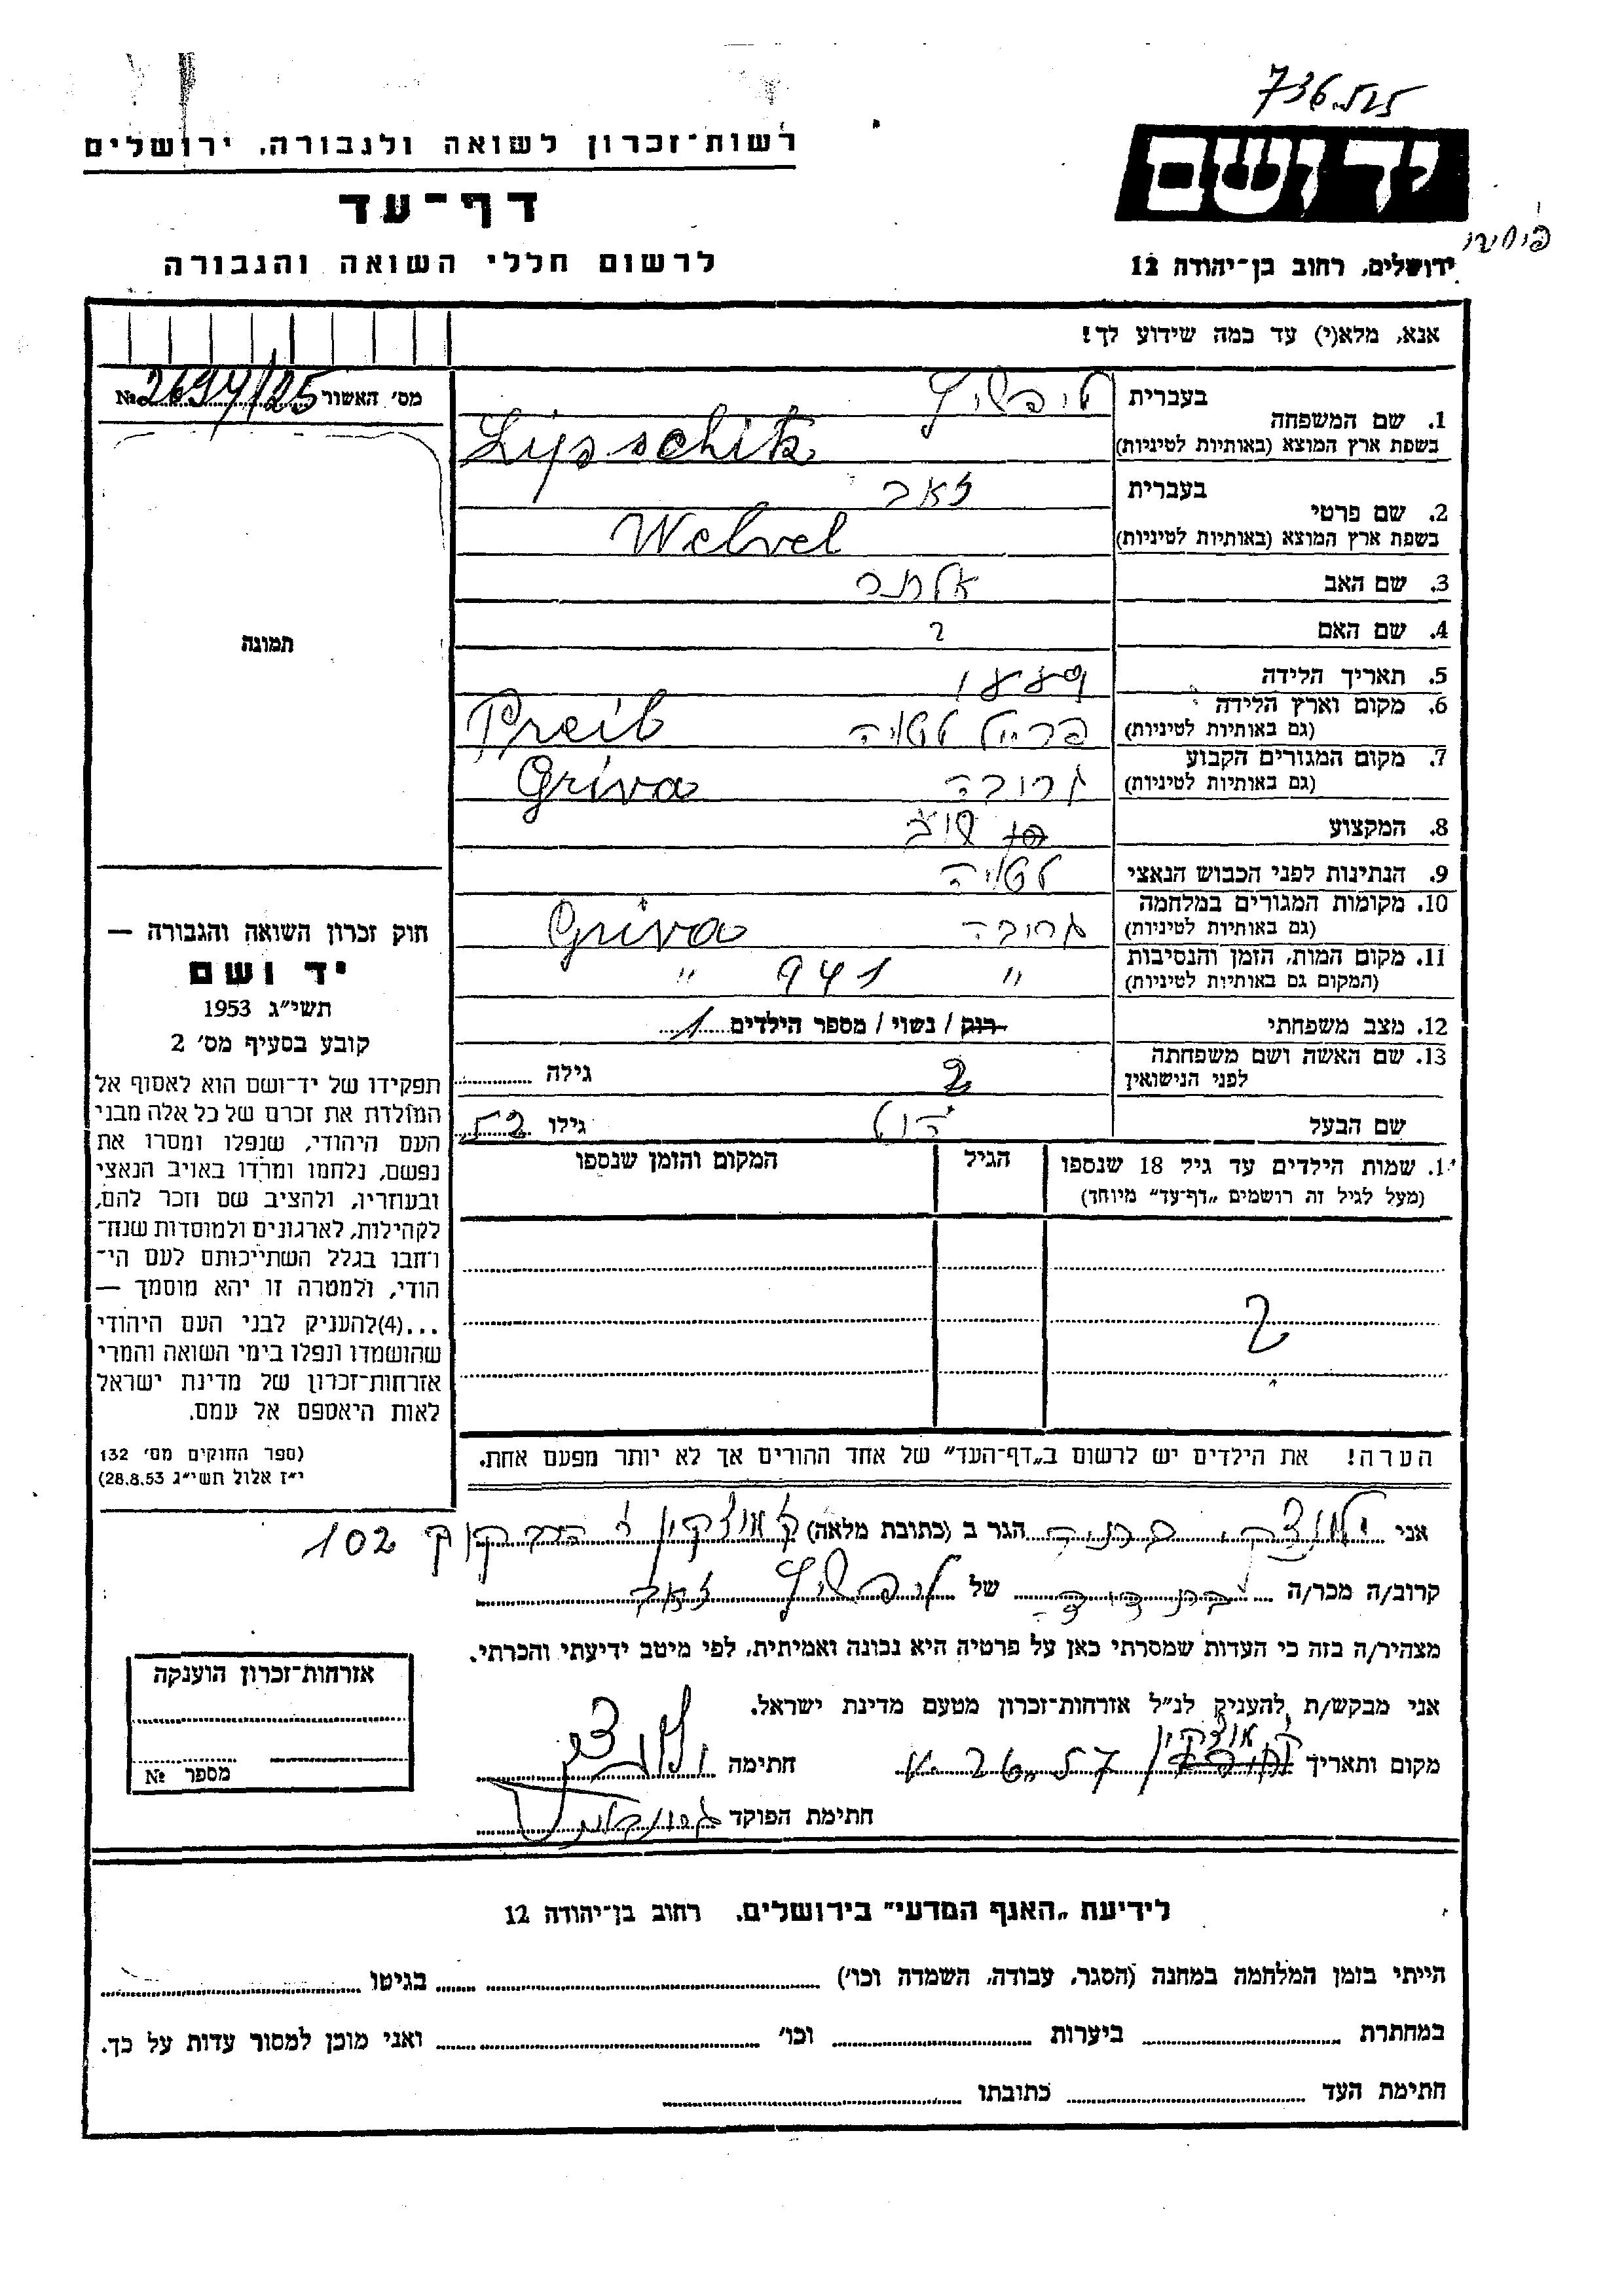 736.525
רשות־זכרון לשואה ולגבורה, ירושלים
יד ושם
דף־עד
לרשום חללי השואה והגבורה
ירושלים, רחוב בן־יהודה 12
אנא, מלא(י) עד כמה שידוע לך!
מס׳ האשור 2694/25 №
1. שם המשפחה בעברית ליפשיץ
בשפת ארץ המוצא (באותיות לטיניות) Lipschitz
2. שם פרטי בעברית זאב
בשפת ארץ המוצא (באותיות לטיניות) Welvel
3. שם האב אלתר
4. שם האם ?
5. תאריך הלידה 1889
6. מקום וארץ הלידה (גם באותיות לטיניות) פרייל לטויה Preil
7. מקום המגורים הקבוע (גם באותיות לטיניות) גריבה Griva
8. המקצוע
9. הנתינות לפני הכבוש הנאצי לטויה
10. מקומות המגורים במלחמה (גם באותיות לטיניות) גריבה Griva
11. מקום המות, הזמן והנסיבות (המקום גם באותיות לטיניות) " 941 "
12. מצב משפחתי רווק / נשוי / מספר הילדים 1
13. שם האשה ושם משפחתה לפני הנישואין ? גילה
שם הבעל גילו 52
1. שמות הילדים עד גיל 18 שנספו הגיל המקום והזמן שנספו
(מעל לגיל זה רושמים „דף־עד״ מיוחד)
?
הערה! את הילדים יש לרשום ב„דף־העד״ של אחד ההורים אך לא יותר מפעם אחת.
תמונה
חוק זכרון השואה והגבורה —
יד ושם
תשי״ג 1953
קובע בסעיף מס׳ 2
תפקידו של יד־ושם הוא לאסוף אל
המולדת את זכרם של כל אלה מבני
העם היהודי, שנפלו ומסרו את
נפשם, נלחמו ומרדו באויב הנאצי
ובעוזריו, ולהציב שם וזכר להם,
לקהילות, לארגונים ולמוסדות שנח־
רחבו בגלל השתייכותם לעם הי־
הודי, ולמטרה זו יהא מוסמך —
...(4)להעניק לבני העם היהודי
שהושמדו ונפלו בימי השואה והמרי
אזרחות־זכרון של מדינת ישראל
לאות היאספם אל עמם.
(ספר החוקים מס׳ 132
י״ז אלול תשי״ג 28.8.53)
אני הגר ב (כתובת מלאה) ק אוצקין 102
קרוב/ה מכר/ה של ליפשיץ זאב
מצהיר/ה בזה כי העדות שמסרתי כאן על פרטיה היא נכונה ואמיתית, לפי מיטב ידיעתי והכרתי.
אני מבקש/ת להעניק לנ״ל אזרחות־זכרון מטעם מדינת ישראל.
מקום ותאריך ק אוצקין חתימה
חתימת הפוקד
אזרחות־זכרון הוענקה
מספר №
לידיעת „האגף המדעי״ בירושלים. רחוב בן־יהודה 12
הייתי בזמן המלחמה במחנה (הסגר, עבודה, השמדה וכו׳) בגיטו
במחתרת ביערות וכו׳ ואני מוכן למסור עדות על כך.
חתימת העד כתובתו